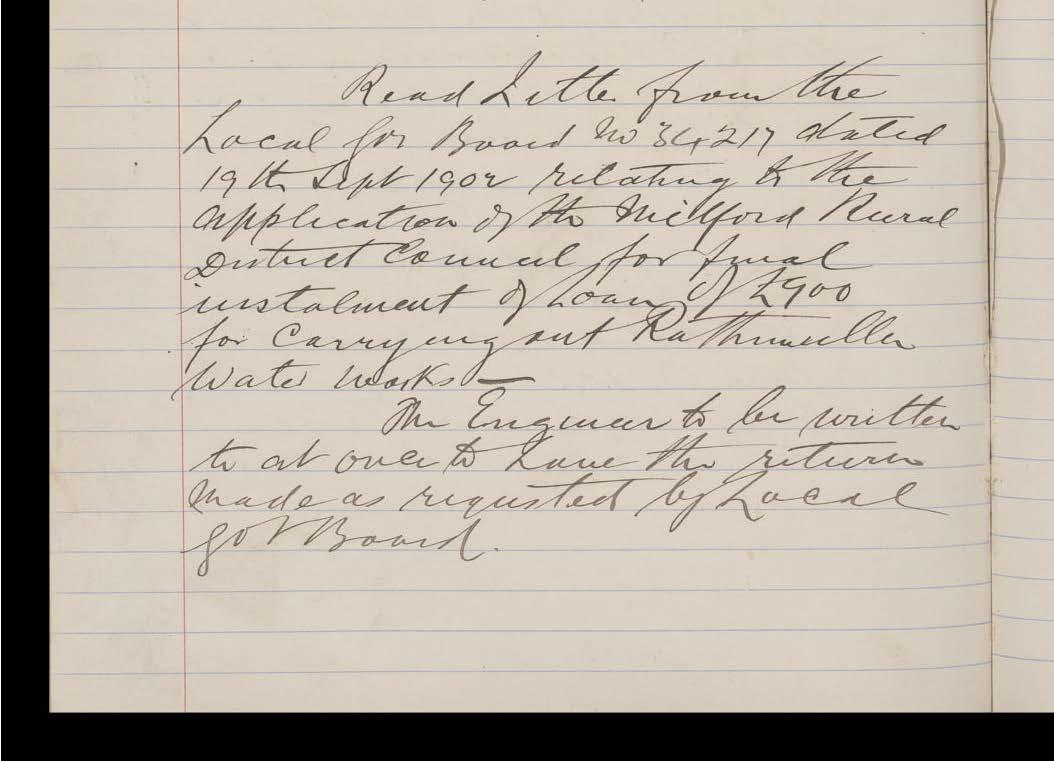 Read Letter from the
Local Gov Board No 34217 dated
19th Sept 1902 relating to the
application of the Milford Rural
District Council for final
instalment of Loan of £900
for Carrying out Rathmullen
Water Works —
The Engineer to be written
to at once to have the return
made as requsted by Local
Govt Board.